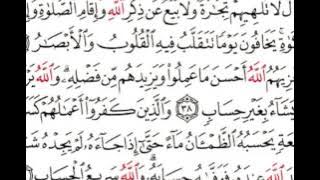 لٌ لَّا تُلْهِيهِمْ تِجَٰرَةٌ وَلَا بَيْعٌ عَن ذِكْرِ ٱللَّهِ وَإِقَامِ ٱلصَّلَوٰةِ وَإِ
وٰةِ يَخَافُونَ يَوْمًا تَتَقَلَّبُ فِيهِ ٱلْقُلُوبُ وَٱلْأَبْصَٰرُ
زِيَهُمُ ٱللَّهُ أَحْسَنَ مَا عَمِلُوا۟ وَيَزِيدَهُم مِّن فَضْلِهِۦ ۗ وَٱللَّهُ
يَشَآءُ بِغَيْرِ حِسَابٍ ٣٨ وَٱلَّذِينَ كَفَرُوٓا۟ أَعْمَٰلُهُمْ كَسَ
عَةٍ يَحْسَبُهُ ٱلظَّمْـَٔانُ مَآءً حَتَّىٰٓ إِذَا جَآءَهُۥ لَمْ يَجِدْهُ شَ
ٱللَّهَ عِندَهُۥ فَوَفَّىٰهُ حِسَابَهُۥ ۗ وَٱللَّهُ سَرِيعُ ٱلْحِسَابِ